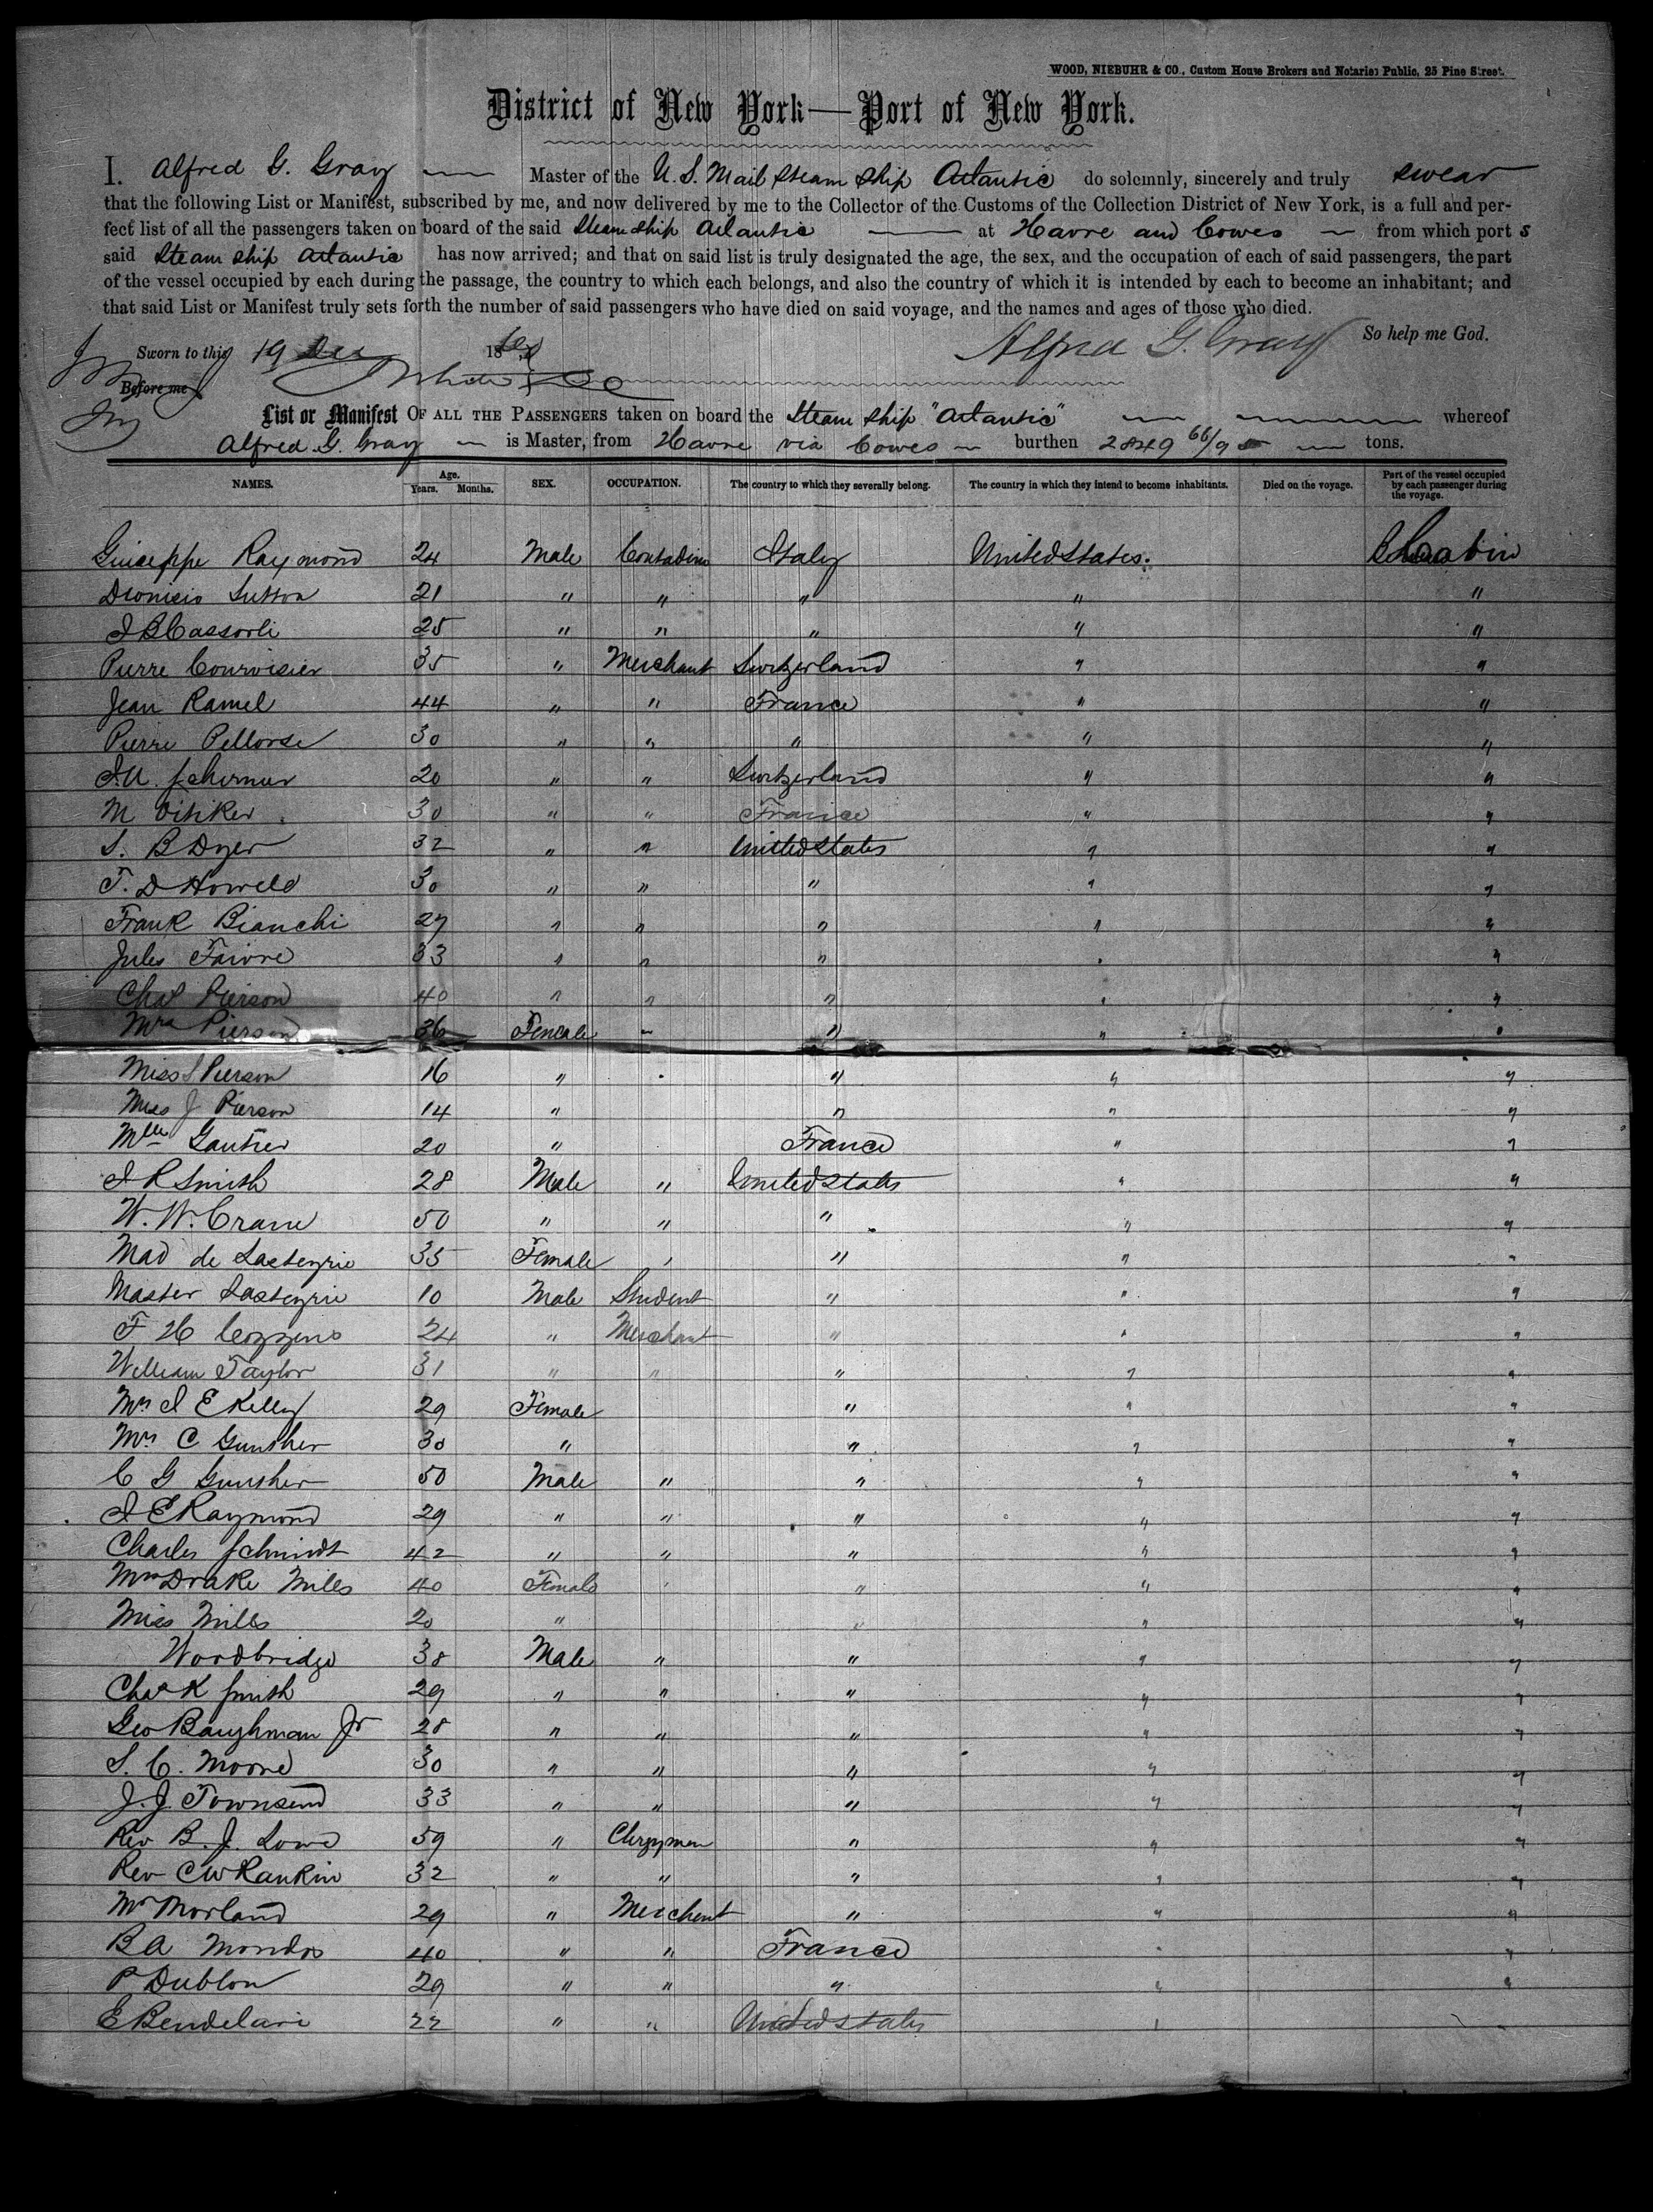 WOOD, NIEBUHR & CO., Custom House Brokers and Notaries Public, 25 Pine Street.
District of New York—Port of New York.
I. Alfred G. Gray Master of the U.S. Mail Steam Ship Atlantic do solemnly, sincerely and truly swear
that the following List or Manifest, subscribed by me, and now delivered by me to the Collector of the Customs of the Collection District of New York, is a full and per-
fect list of all the passengers taken on board of the said Steam Ship Atlantic at Havre and Cowes from which port s
said Steam Ship Atlantic has now arrived; and that on said list is truly designated the age, the sex, and the occupation of each of said passengers, the part
of the vessel occupied by each during the passage, the country to which each belongs, and also the country of which it is intended by each to become an inhabitant; and
that said List or Manifest truly sets forth the number of said passengers who have died on said voyage, and the names and ages of those who died.
So help me God.
Sworn to this 19 18 Alfred G. Gray
Before me
List or Manifest OF ALL THE PASSENGERS taken on board the Steam Ship "Atlantic" whereof
Alfred G. Gray is Master, from Havre via Cowes burthen 2849 66/95 tons.
NAMES. Age. Years. Months. SEX. OCCUPATION. The country to which they severally belong. The country in which they intend to become inhabitants. Died on the voyage. Part of the vessel occupied by each passenger during the voyage.
Giuseppe Raymond 24 Male Contadino Italy United States. Cabin
Dionisio Sutton 21 " " " " "
J B Cassorli 25 " " " " "
Pierre Courvoisier 35 " Merchant Switzerland " "
Jean Ramel 44 " " France " "
Pierre Pellorse 30 " " " " "
20 " " Switzerland " "
M 30 " " France " "
S. B Dyer 32 " " United States " "
T. D Howell 30 " " " " "
Frank Bianchi 27 " " " " "
Jules Faivre 33 " " " " "
Chas Pierson 40 " " " " "
Mrs Pierson 36 Female " " " "
Miss S Pierson 16 " " " " "
Miss J Pierson 14 " " " "
Mlle Gautier 20 " France " "
J R Smith 28 Male " United States " "
W. W. Crane 50 " " " " "
Mad de Lasteyrie 35 Female " " " "
Master Lasteyrie 10 Male Student " " "
F H Cozzens 24 " Merchant " " "
William Taylor 31 " " " " "
Mrs J E Kelly 29 Female " " "
Mrs C Gunther 30 " " " "
C G Gunther 50 Male " " " "
J E Raymond 29 " " " " "
Charles Schmidt 42 " " " " "
Mrs Drake Mills 40 Female " " "
Miss Mills 20 " " " "
Woodbridge 38 Male " " " "
Chas K Smith 29 " " " " "
Geo Baughman Jr 28 " " " " "
S. C. Moore 30 " " " " "
J. J. Townsend 33 " " " " "
Rev B. J. Lowe 59 " Clergyman " " "
Rev C W Rankin 32 " " " " "
Mr Morland 29 " Merchant " " "
B A 40 " " France " "
P Dublon 29 " " " " "
E Bendelari 22 " " United States " "